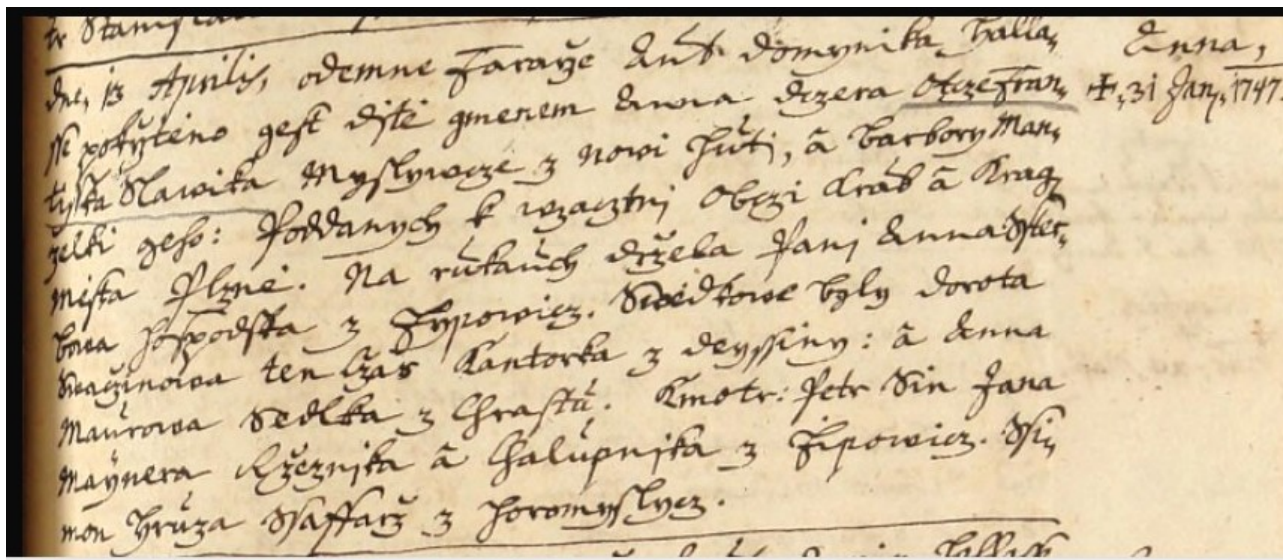 tr Stanisl
dne, 13 Aprilis, odemne Faraże Ant: Domynika Halla,
sse pokrżteno gest djtě gmenem Anna dczera Otcze Fran,
tysska Slawika Myslywcze z nowi Huti, ā Barbory Man,
żelki geho: Poddanych k wzactnj Obczi Král: ā Krag:
Mista Plznie. Na rukauch držela Panj Anna
bowa Hospodska z Żypowicz. Swiedkowe byly dorota
Swaczinowa ten Czas Kantorka z deyssiny: ā Anna
Maurowa Sedlka z Chrastu. Kmotr: Petr Sin Jana
Maÿnera Rzeznjka ā Chalupnjka z Żipowicz. Ssi,
mon Hruza Ssaffarż z Horomyslycz.
Anna,
+, 31 Janj, 1747.